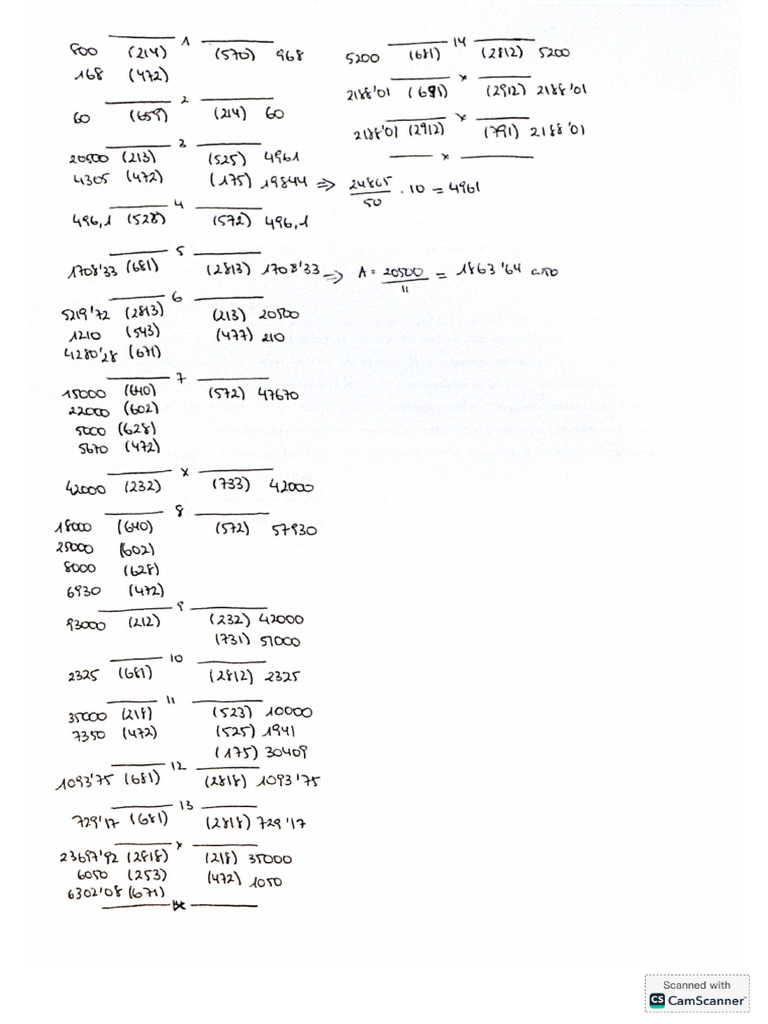 1
800 (214) (570) 968
168 (472)
2
60 (659) (214) 60
3
20500 (213) (525) 4961
4305 (472) (175) 19844 ⇒ 24805/50 · 10 = 4961
4
496,1 (528) (572) 496,1
5
1708'33 (681) (2813) 1708'33 ⇒ A = 20500/11 = 1863'64 año
6
5219'72 (2813) (213) 20500
1210 (543) (477) 210
4280'28 (671)
7
15000 (640) (572) 47670
22000 (602)
5000 (628)
5670 (472)
x
42000 (232) (733) 42000
8
18000 (640) (572) 57930
25000 (602)
8000 (628)
6930 (472)
9
93000 (212) (232) 42000
(731) 51000
10
2325 (681) (2812) 2325
11
35000 (218) (523) 10000
7350 (472) (525) 1941
(175) 30409
12
1093'75 (681) (2818) 1093'75
13
729'17 (681) (2818) 729'17
x
23697'92 (2818) (218) 35000
6050 (253) (472) 1050
6302'08 (671)
14
5200 (681) (2812) 5200
x
2188'01 (691) (2912) 2188'01
x
2188'01 (2912) (791) 2188'01
x
Scanned with
CS CamScanner